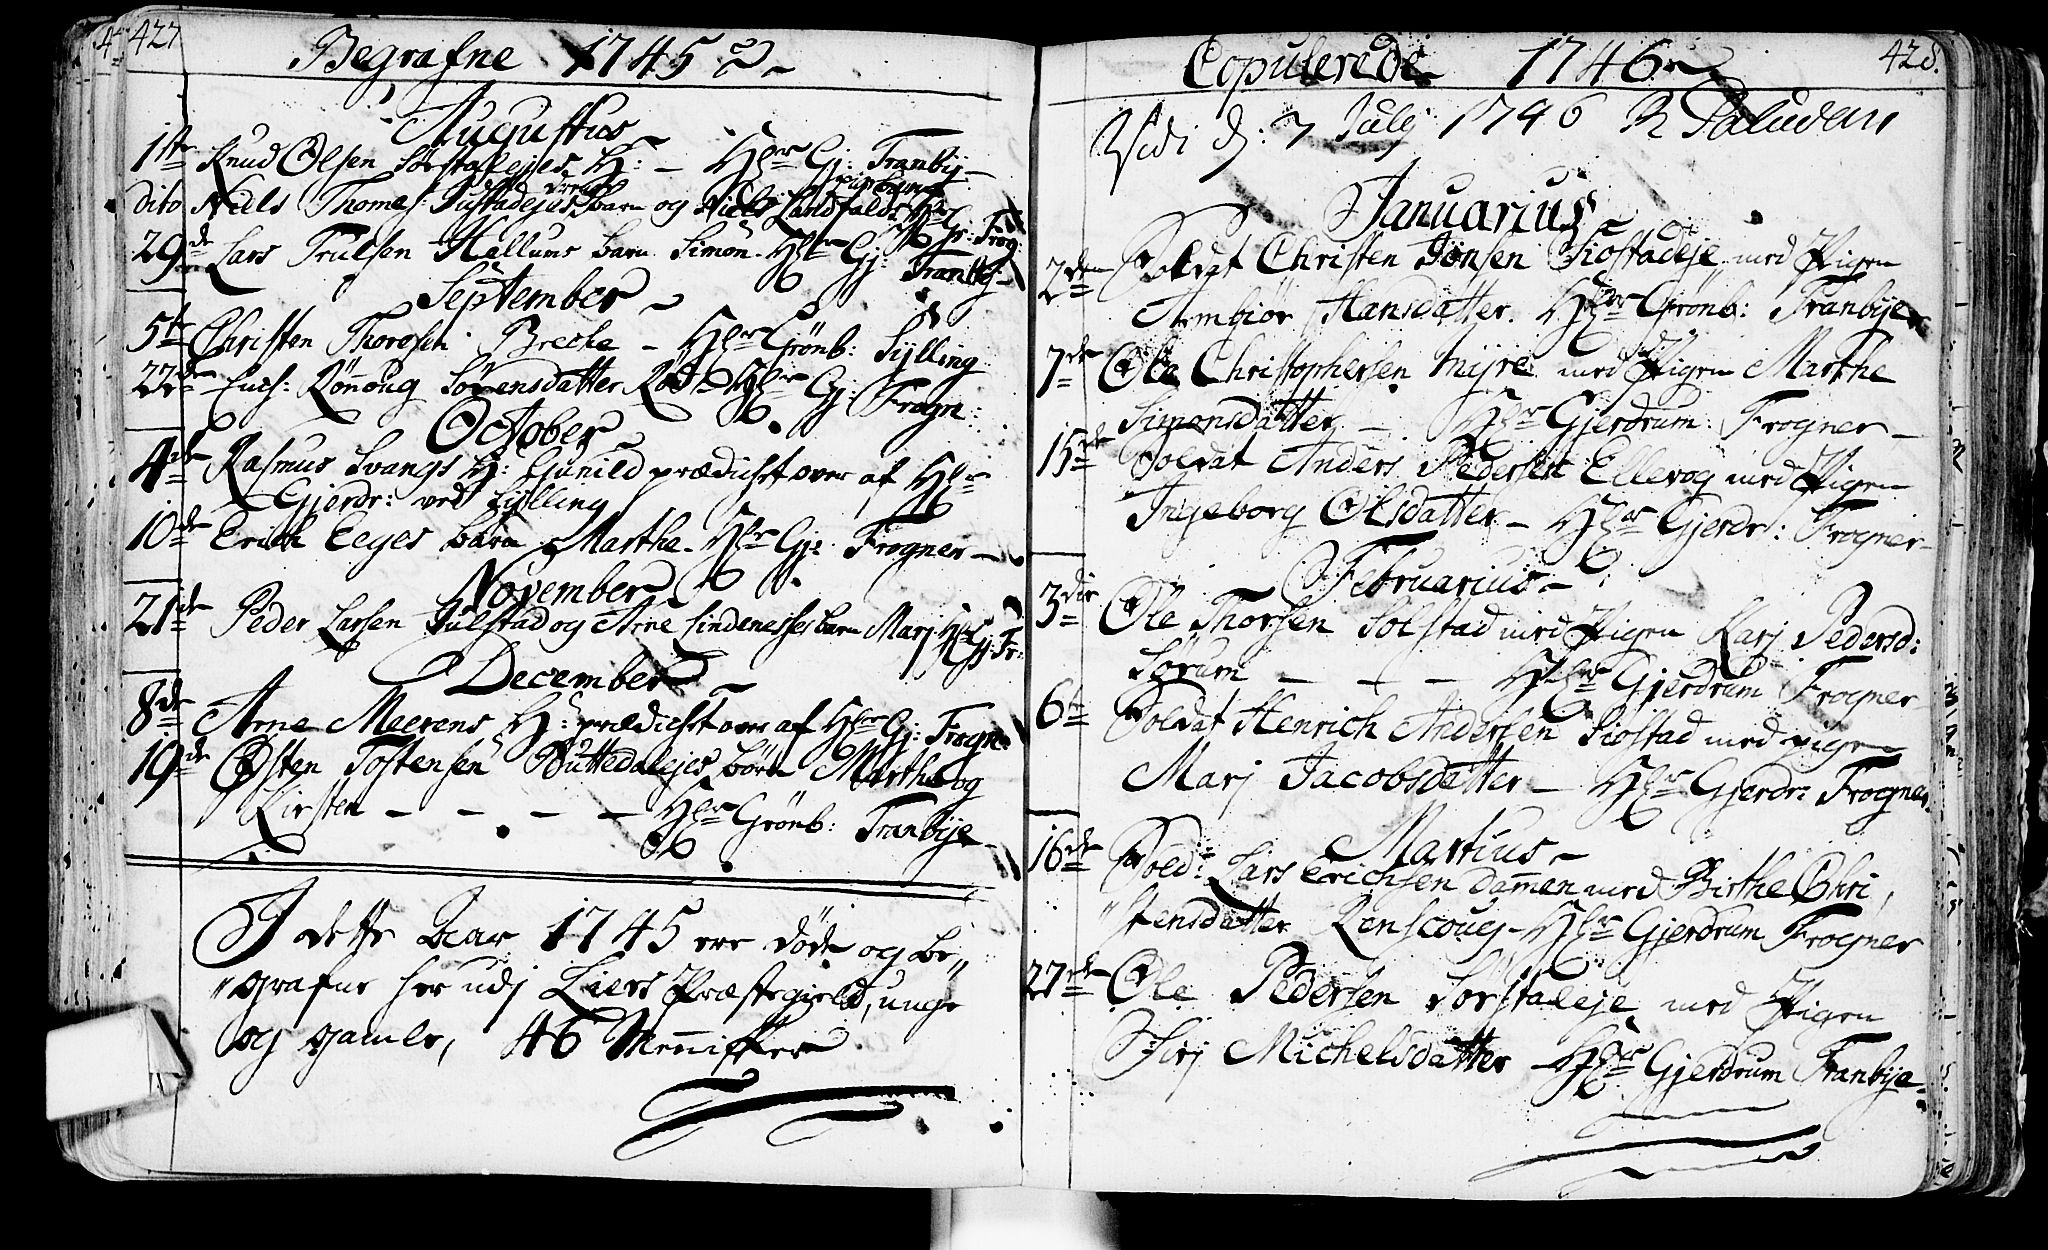 427
Begrafne 1745
Augustus
1ste Knud Olsen Sørstaejes H: – Hr Gj: Tranbÿ –
pigebarn
drenge
dito Niels Thomes: Justadejes barn og Niels Landfalds Hr Gr: Frog:
29de Lars Trulsen Hallums barn Simon. Hr Gj: Tranbÿ –
September
5te Christen Thoresen Brecke – Hr Grönb: Sÿlling
22de Rönnoug Sörensdatter Röd – Hr Gj: Frogn:
October
4de Rasmus Svangs H: Gunild prædicket over af Hr
Gjerdr: ved Sÿlling
10de Erich Eeges barn Martha. Hr Gj: Frogner –
November
21de Peder Larsen Julstad og Arne Lindenesses barn Marj Hr Gj: Fr:
December
8de Arne Meerens H: prædicket over af Hr Gj: Frogn:
19de Østen Tostensen Buttedalejes börn Marthe og
Kirsten – – – – Hr Grönb: Tranbÿe
I dette Aar 1745 ere döde og be„
„grafne her udj Liers Præstegield, unge
og gamle, 46 Mennisker
428.
Copulerede 1746
Vidi d: 7 Julÿ 1746 R Paludan
Januarius
2den Soldat Christen Jonsen Siostadeje med Pigen
Armbiör Hansdatter. Hr Grönb: Tranbÿe
7de Ole Christophersen Mÿre med Pigen Marthe
Simonsdatter – Hr Gjerdrum: Frogner –
15de Soldat Anders Pedersen Ellevog med Pigen
Ingeborg Olsdatter – Hr Gjerdr: Frogner –
Februarius –
3die Ole Thorsen Solstad med Pigen Karj Pedersd:
Sørum – – – Hr Gjerdrum Frogner
6te Soldat Henrich Andersen Siostad med pigen
Marj Jacobsdatter – Hr Gjerdr: Frogner.
Martius –
16de Sold: Lars Erichsen Dammen med Birthe Chri„
„stensdatter Renscoug – Hr Gjerdrum Frogner
27de Ole Pedersen Sörstaleje med Pigen
Sirj Michelsdatter – Hr Gjerdrum Tranbÿe –